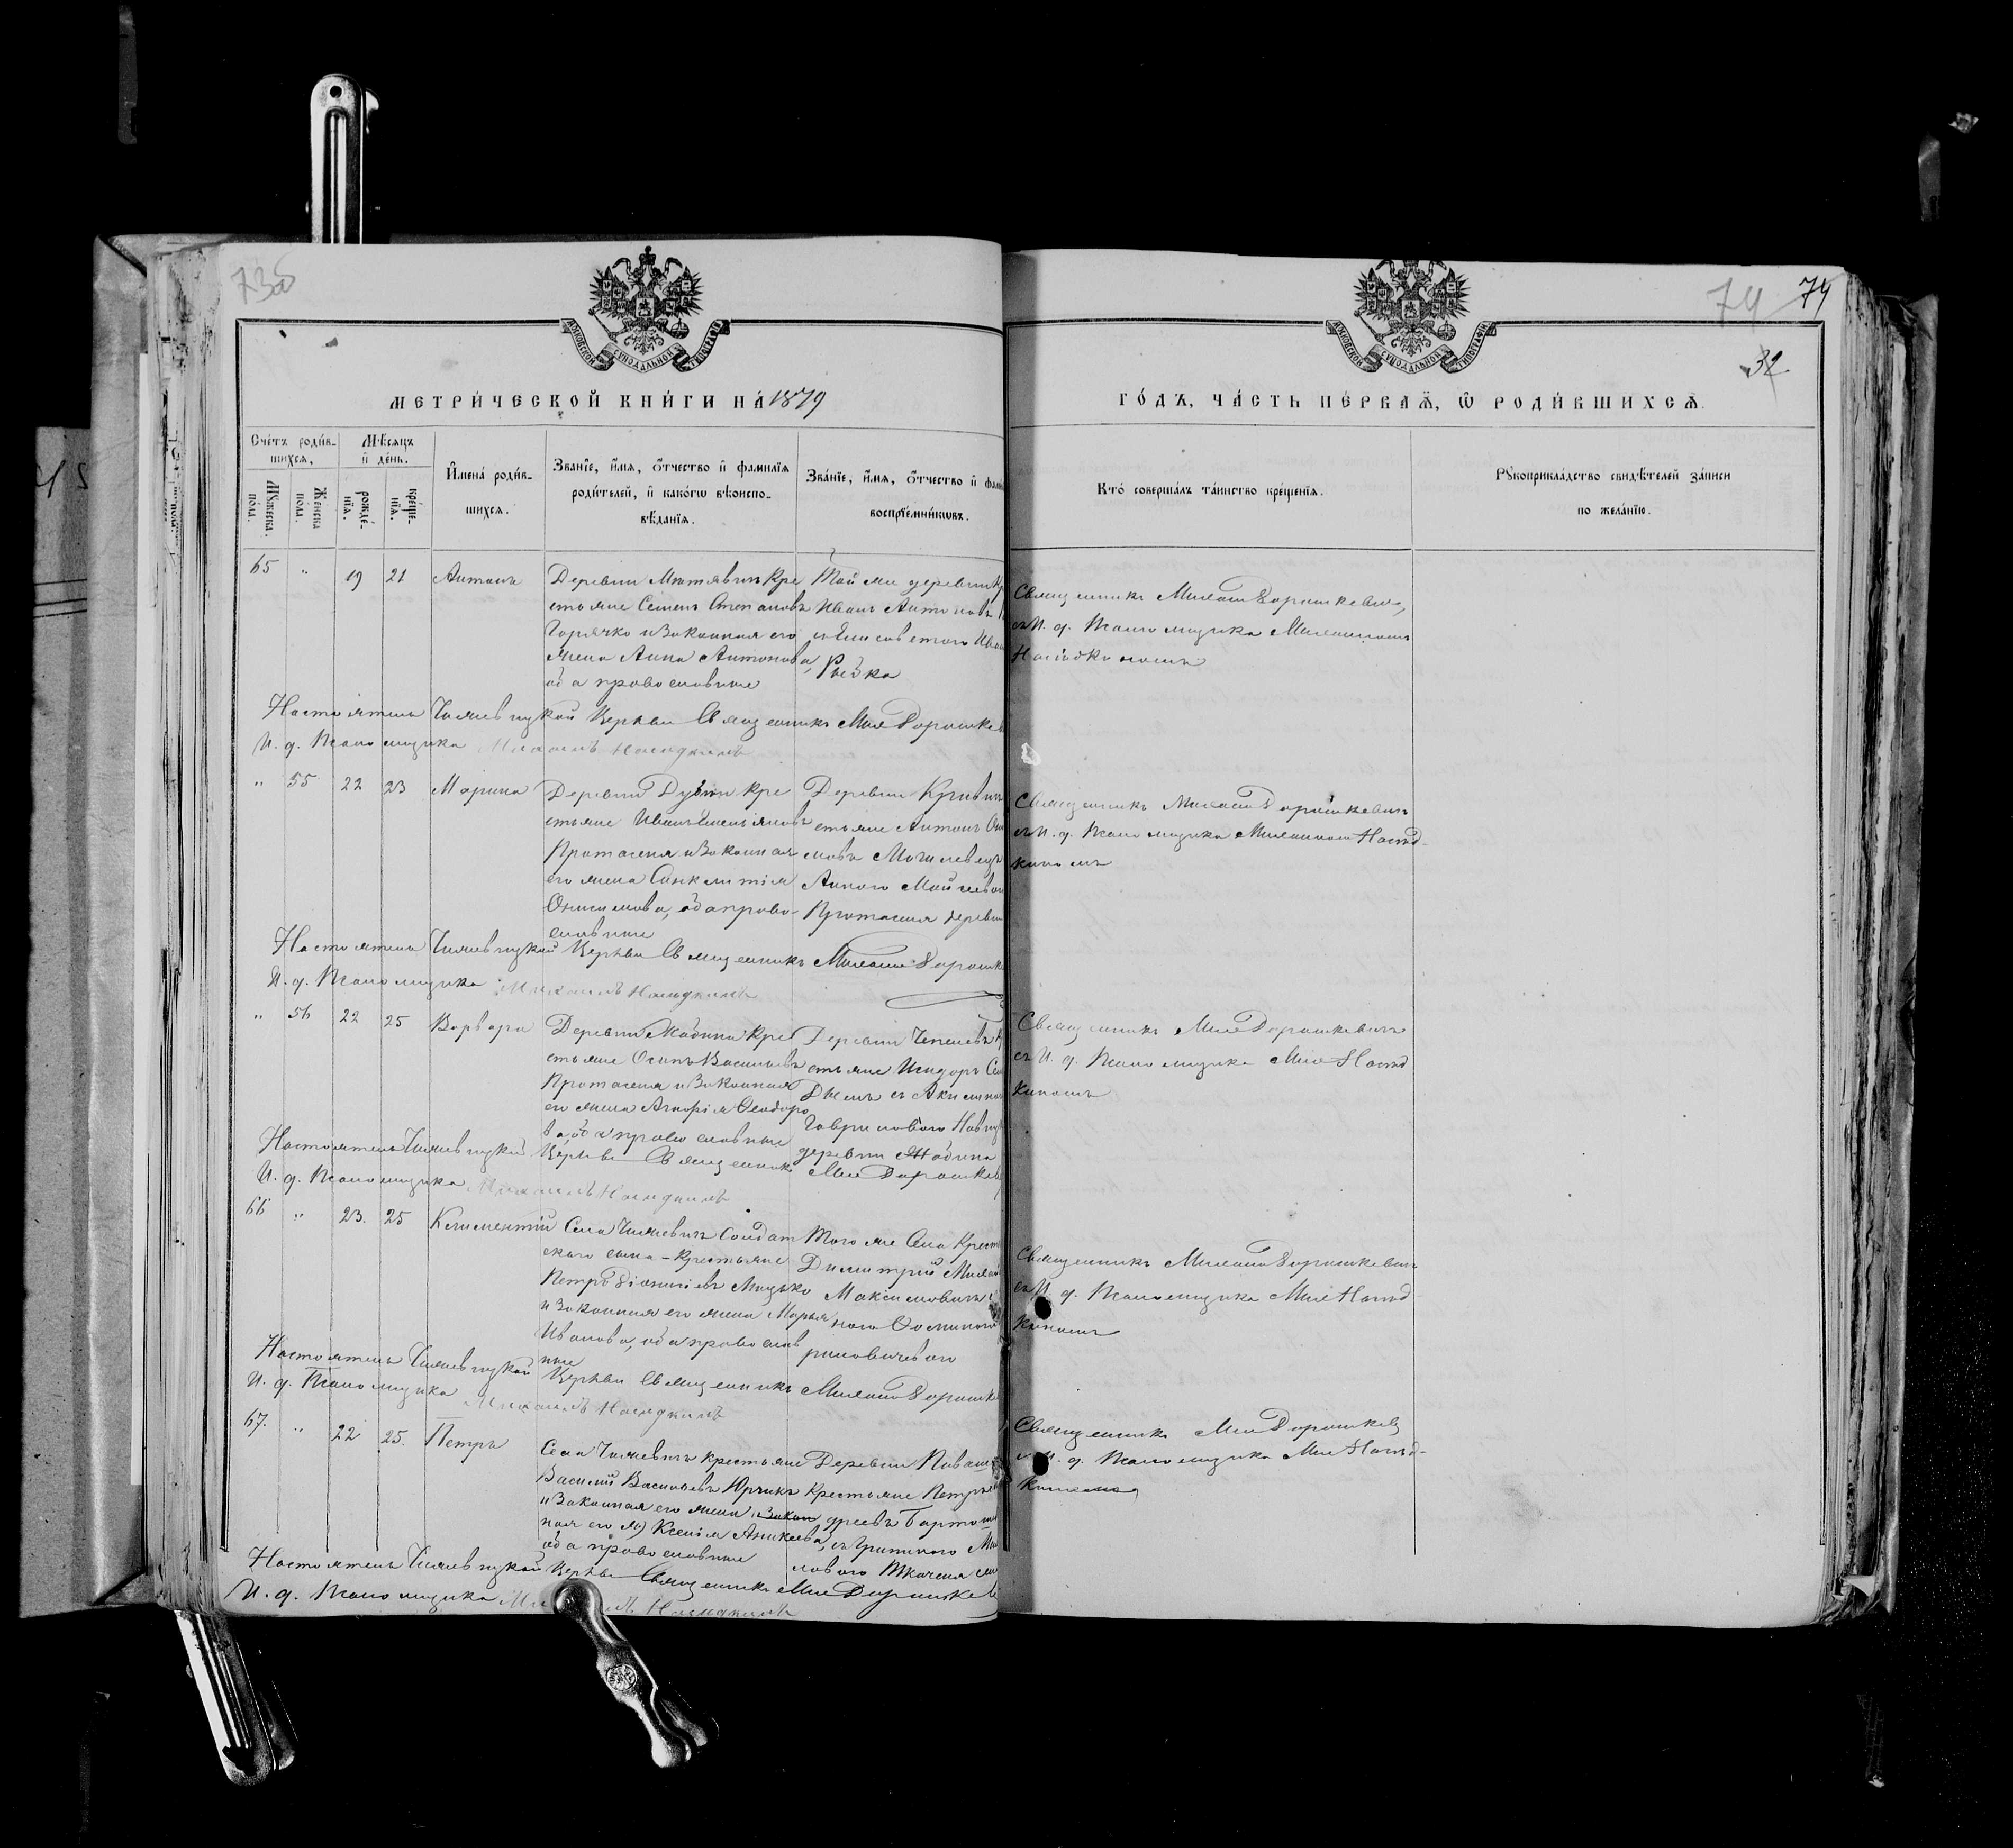 73об
74 74
32
МОСКОВСКОЙ СѴНОДАЛЬНОЙ ТИПОГРАФІИ
МОСКОВСКОЙ СѴНОДАЛЬНОЙ ТИПОГРАФІИ
МЕТРИ́ЧЕСКОЙ КНИ́ГИ НА́ 1879
ГО́ДЪ, ЧА́СТЬ ПЕ́РВАѦ, Ѡ РОДИ́ВШИХСѦ.
Сче́тъ роди́в-
шихсѧ,
Мꙋ́жеска по́ла.
Же́нска пола.
Мѣ́сѧцъ
и҆ де́нь.
рожде́-нїѧ.
креще́-нїѧ.
И҆мена́ роди́в-
шихсѧ.
Зва́нїе, и҆́мѧ, ѻ҆́тчество и҆ фами́лїѧ
роди́телей, и҆ како́гѡ вѣ́роиспо-
вѣ́данїѧ.
Зва́нїе, и҆́мѧ, ѻ҆́тчество и҆ фами
воспрїе́мникѡвъ.
Кто́ соверша́лъ та́инство креще́нїѧ.
Рꙋкоприкла́дство свидѣ́телей за́писи
по жела́нїю.
65 " 19 21 Антонъ
Деревни Мотявичъ Кре
стьяне Семенъ Степановъ
Горячко и Законная его
жена Анна Антонова,
оба православные
Той же деревни Кр
Иванъ Антоновъ
съ Елисаветою Ива
Священникъ Михаилъ Дорошкевичъ,
съ И. д. Псаломщика Михаиломъ
Насѣдкиномъ
Настоятель Чижевицкой Церкви Священникъ Мих Дорошкев
И. д. Псаломщика Михаилъ Насѣдкинъ
" 55 22 23 Марина
Деревни Дубеи Кре
стьяне Иванъ Емельяновъ
Протасеня и Законная
его жена Синклитія
Онисимова, оба право-
славные
Деревни Кривич
стьяне Антонъ
Могилевецъ
Анною Моисеево
Протасеня деревни
Священникъ Михаилъ Дорошкевичъ
съ И. д. Псаломщика Михаиломъ Насѣд-
киномъ
Настоятель Чижевицкой Церкви Священникъ Михаилъ Дорошке
И. д. Псаломщика Михаилъ Насѣдкинъ
" 56 22 25 Варвара
Деревни Жабина Кре
стьяне Осипъ Васильевъ
Протасеня и Законная
его жена Агафія Ѳеодоро
ва, оба православные
Деревни Чепелевъ К
стьяне Исидоръ Се
съ Акилиною
Гавриловою
деревни Жабина
Священникъ Мих Дорошкевичъ
съ И. д. Псаломщика Мих Насѣд
киномъ
Настоятель Чижевицкой Церкви Священникъ Мих Дорошкев
И. д. Псаломщика Михаилъ Насѣдкинъ
66 " 23. 25 Климентій
Села Чижевичъ Солдат
скаго сына - Крестьяне
Петръ Діонисіевъ Мацько
и Законная его жена Марья
Иванова, оба православ
ные
Того же Села Кресть
Димитрій Михай
Максимовичъ
Священникъ Михаилъ Дорошкевичъ
съ И. д. Псаломщика Мих Насѣд
киномъ
Настоятель Чижевицкой Церкви Священникъ Михаилъ Дорошке
И. д. Псаломщика Михаилъ Насѣдкинъ
67. " 22 25. Петръ
Села Чижевичъ Крестьяне
Василій Васильевъ Юрчикъ
и Законная его жена и Закон
ная его ж) Ксенія Аникеева,
оба православные
Деревни Поваш
Крестьяне Петръ
дреевъ
Священникъ Мих Дорошкев
съ И. д. Псаломщика Мих Насѣд-
киномъ
Настоятель Чижевицкой Церкви Священникъ Мих Дорошкев
И. д. Псаломщика Михаилъ Насѣдкинъ